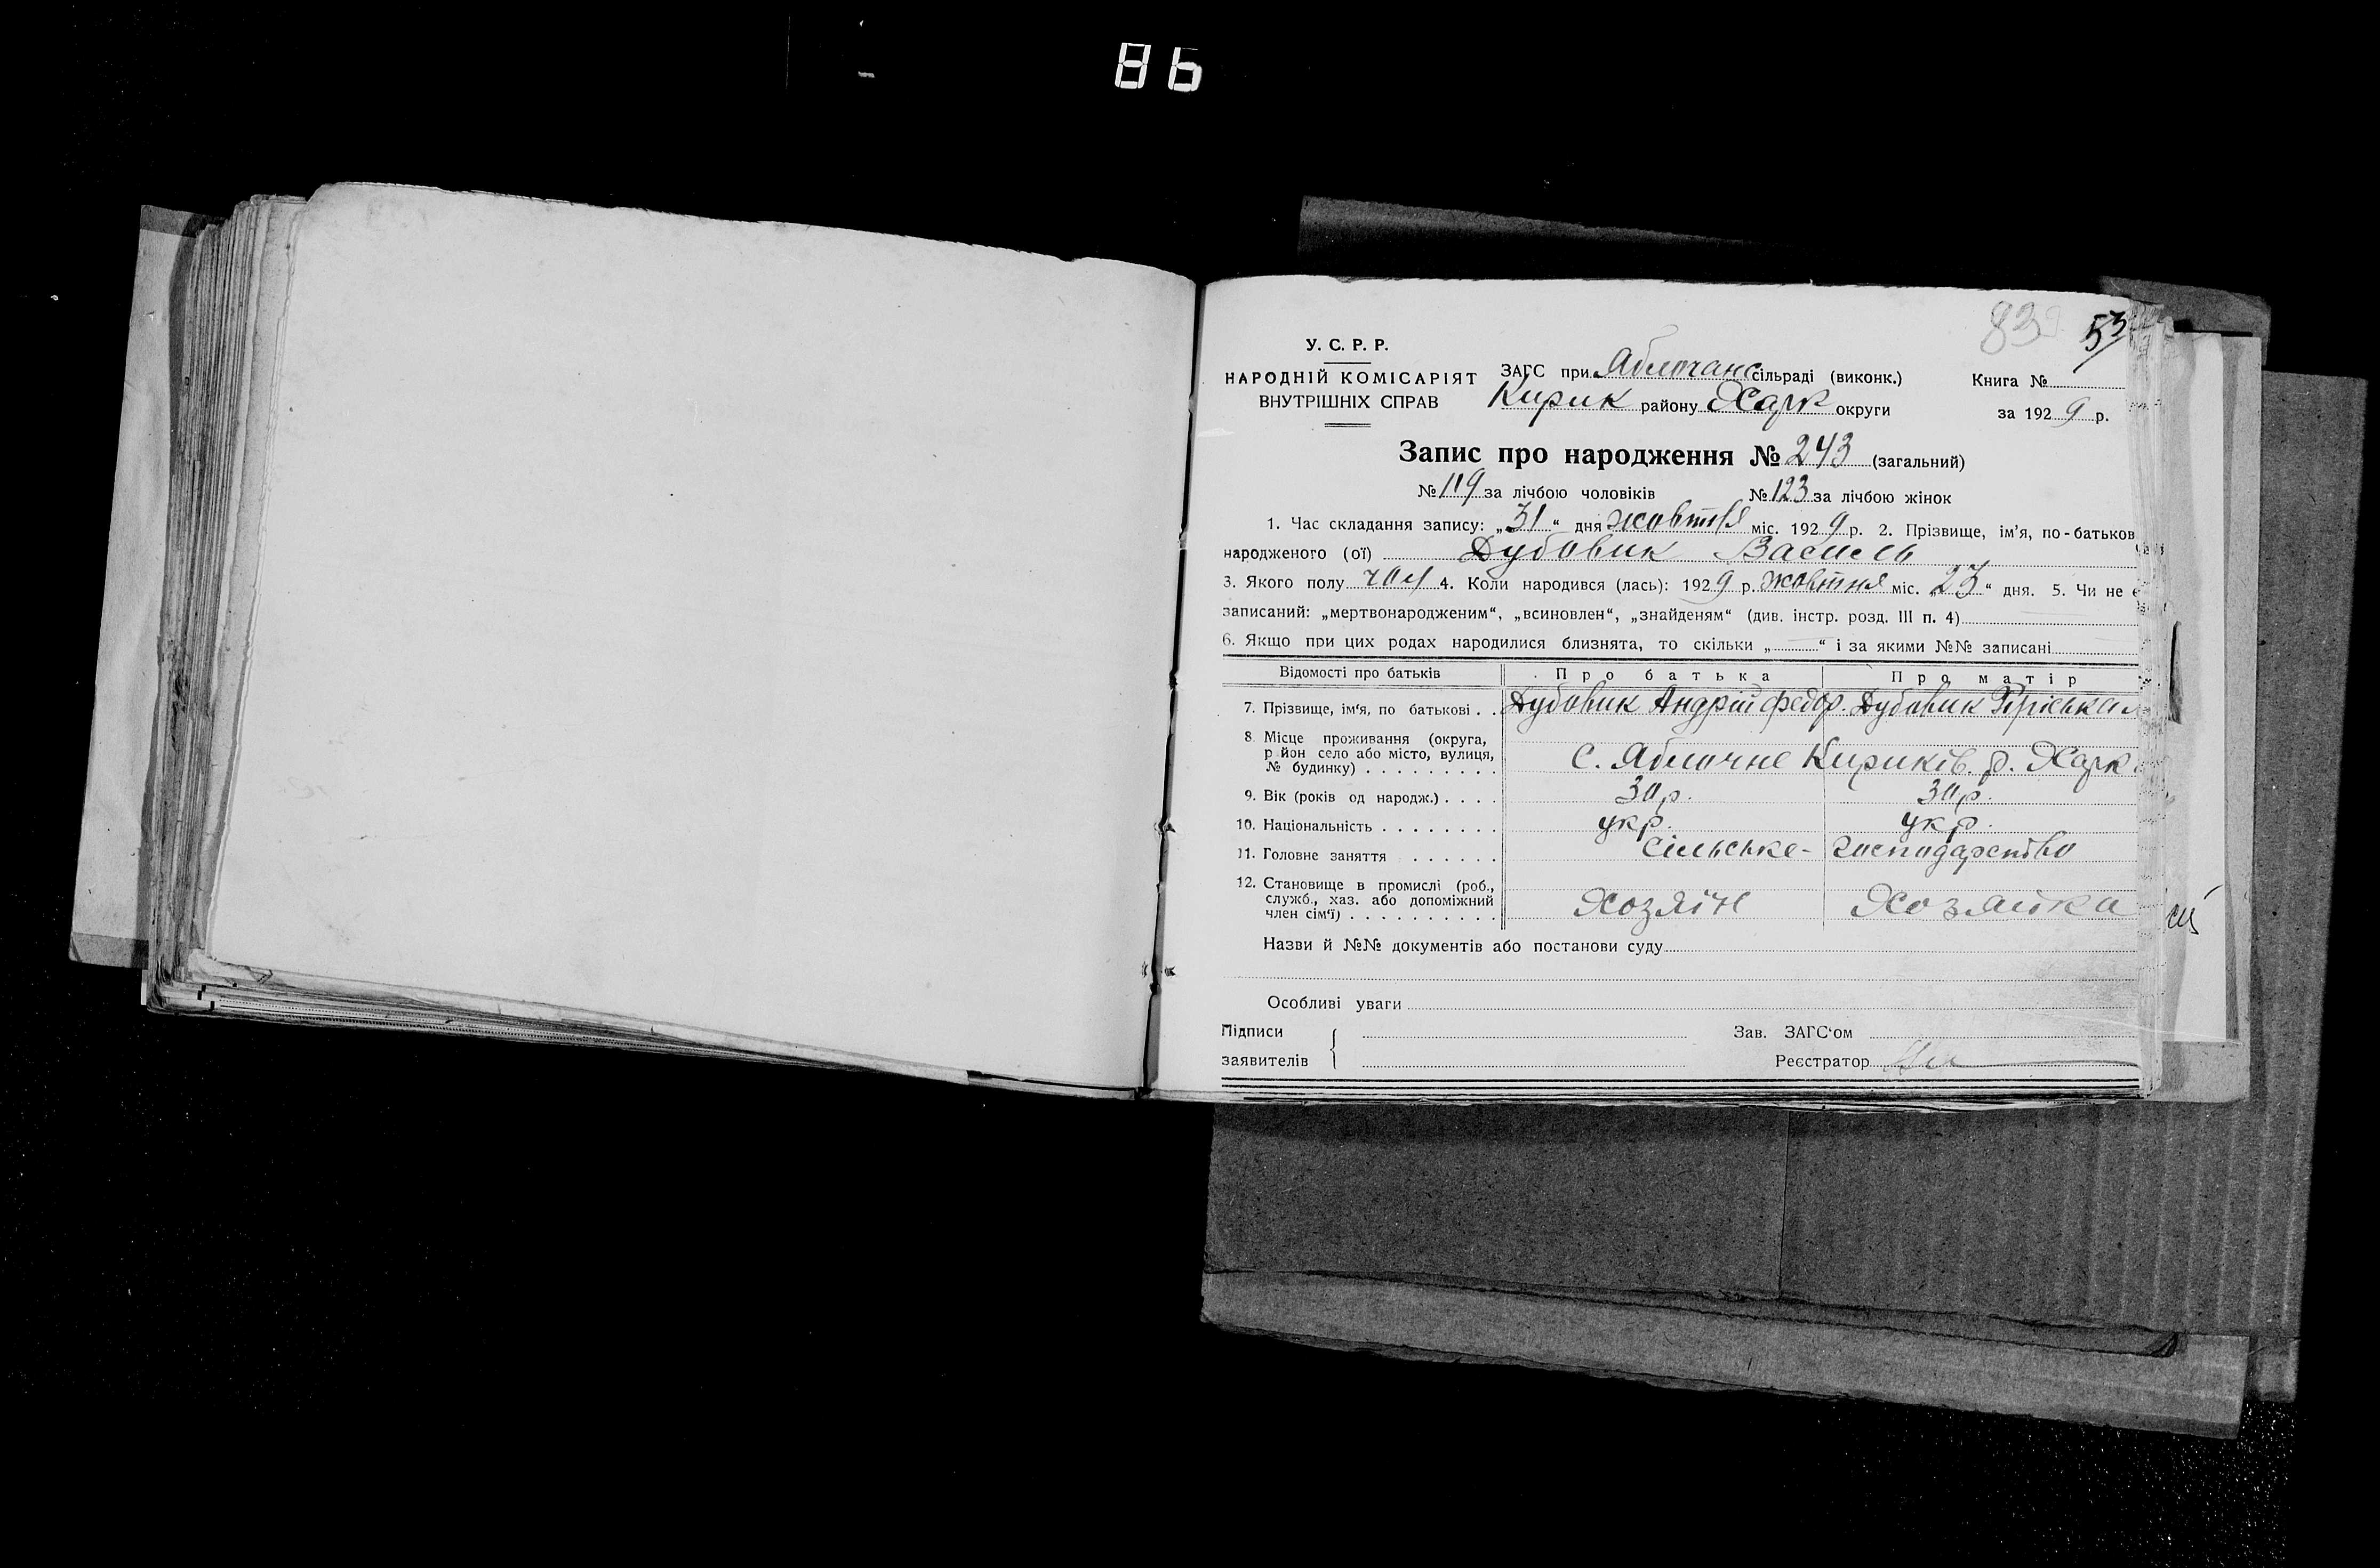 86
83
53
У. С. Р. Р.
НАРОДНІЙ КОМІСАРІЯТ
ВНУТРІШНІХ СПРАВ
ЗАГС при Яблочанс сільраді (виконк.)
Кирик району Харк округи
Книга №
за 1929 р.
Запис про народження № 243 (загальний)
№ 119 за лічбою чоловіків № 123 за лічбою жінок
1. Час складання запису: „31“ дня жовтня міс. 1929 р. 2. Прізвище, ім'я, по-батьков
народженого (ої) Дубовик Василь
3. Якого полу чол 4. Коли народився (лась): 1929 р. жовтня міс. 23“ дня. 5. Чи не є
записаний: „мертвонародженим“, „всиновлен“, „знайденям“ (див. інстр. розд. III п. 4)
6. Якщо при цих родах народилися близнята, то скільки „ “ і за якими №№ записані
Відомості про батьків Про батька Про матір
7. Прізвище, ім'я, по батькові . . Дубовик Андрій Федор. Дубовик
8. Місце проживання (округа,
р йон село або місто, вулиця,
№ будинку) . . . . . . . . . С. Яблочне Кириків. р. Харк.
9. Вік (років од народж.) . . . . 30 р. 30 р.
10. Національність . . . . . . . . укр. укр.
11. Головне заняття . . . . . . сільське- господарство
12. Становище в промислі (роб.,
служб., хаз. або допоміжний
член сім'ї) . . . . . . . . . . Хозяїн Хозяйка
Назви й №№ документів або постанови суду
Особливі уваги
Підписи
заявителів
Зав. ЗАГС'ом
Реєстратор